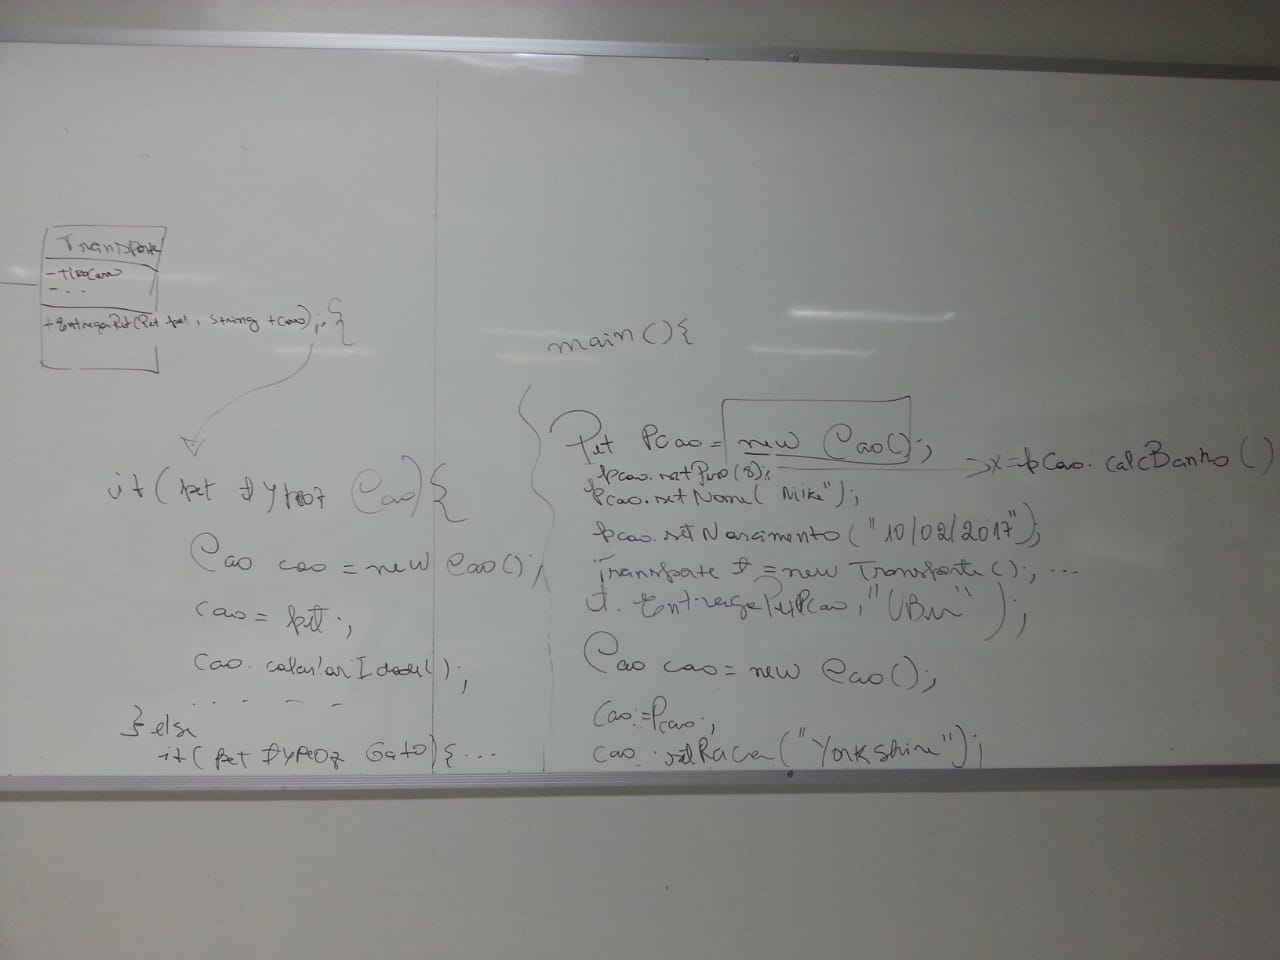 Transporte
- tipoCarro
- ...
+ EntregaPet(Pet pet, String tCarro); {
if( pet typeof Cao) {
Cao cao = new Cao();
cao = pet;
cao.calcularIdade();
. . - - -
} else
if( pet typeof Gato) { ...
main() {
Pet Pcao = new Cao();
pcao.setPeso(8);
x = pCao.calcBanho()
pcao.setNome("Mike");
pcao.setNascimento("10/02/2017");
Transporte t = new Transporte(); ...
t. EntregaPet Pcao, "Uber");
Cao cao = new Cao();
Cao = Pcao;
cao.setRaca("Yorkshire");